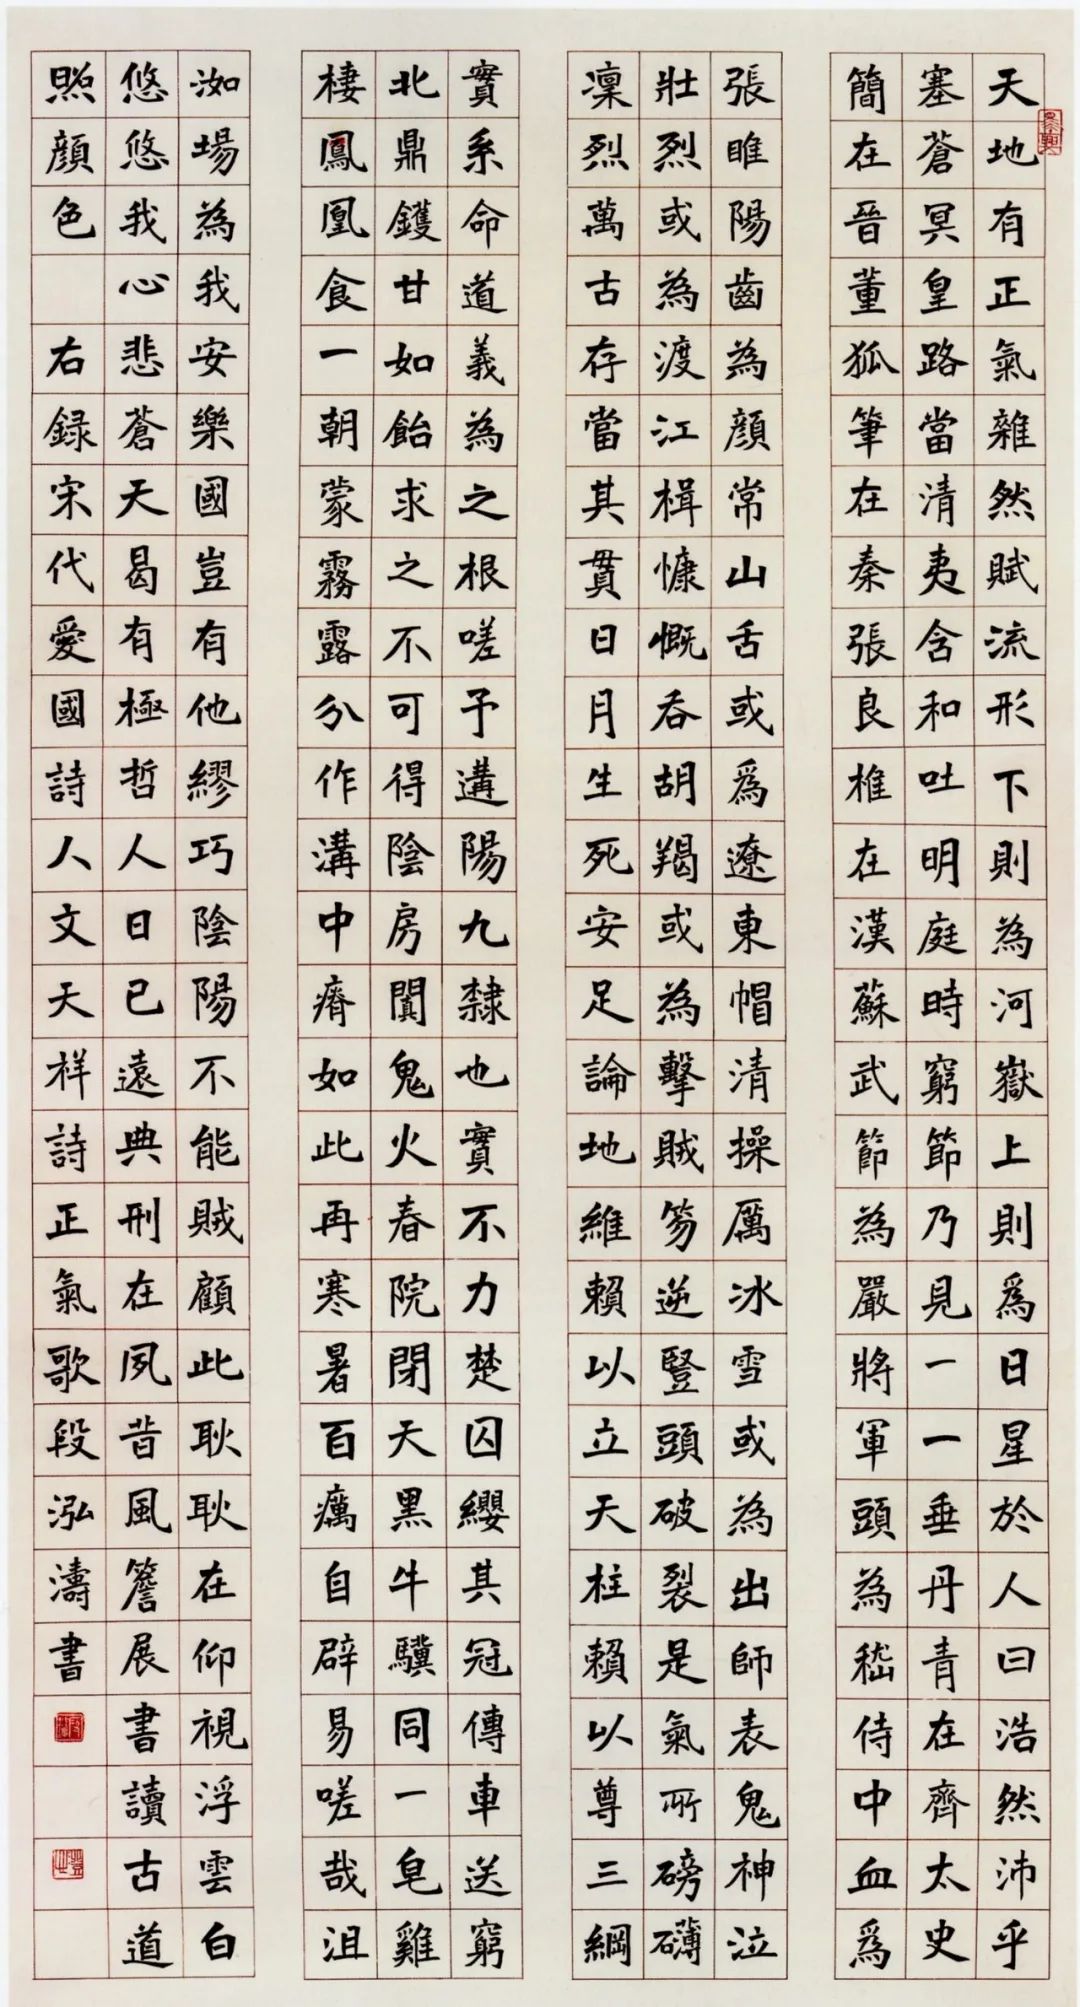 天地有正氣雜然賦流形下則為河嶽上則爲日星於人曰浩然沛乎
塞蒼冥皇路當清夷含和吐明庭時窮節乃見一一垂丹青在齊太史
簡在晉董狐筆在秦張良椎在漢蘇武節為嚴將軍頭為嵇侍中血爲
張睢陽齒為顔常山舌或爲遼東帽清操厲冰雪或為出師表鬼神泣
壯烈或為渡江楫慷慨吞胡羯或為擊賊笏逆豎頭破裂是氣所磅礴
凜烈萬古存當其貫日月生死安足論地維賴以立天柱賴以尊三綱
實系命道義為之根嗟予遘陽九隸也實不力楚囚纓其冠傳車送窮
北鼎鑊甘如飴求之不可得陰房闐鬼火春院閉天黑牛驥同一皂雞
棲鳳凰食一朝蒙霧露分作溝中瘠如此再寒暑百癘自辟易嗟哉沮
洳場為我安樂國豈有他繆巧陰陽不能賊顧此耿耿在仰視浮雲白
悠悠我心悲蒼天曷有極哲人日已遠典刑在夙昔風簷展書讀古道
照顔色 右録宋代愛國詩人文天祥詩正氣歌段泓濤書